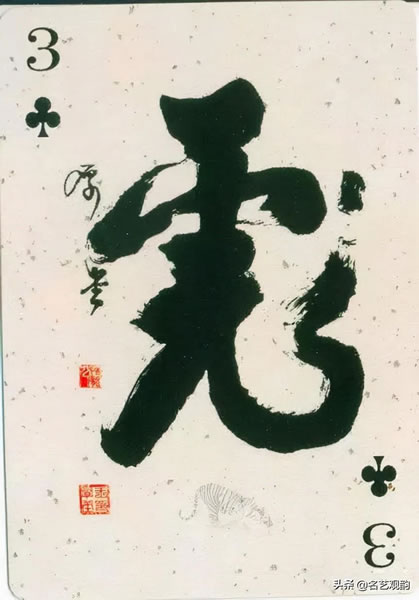 3
彪
3
头条 @名艺观韵